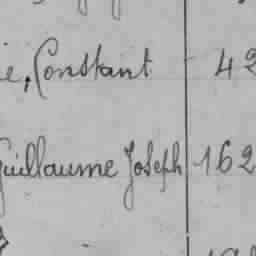 ie, Constant 42
Guillaume Joseph 162